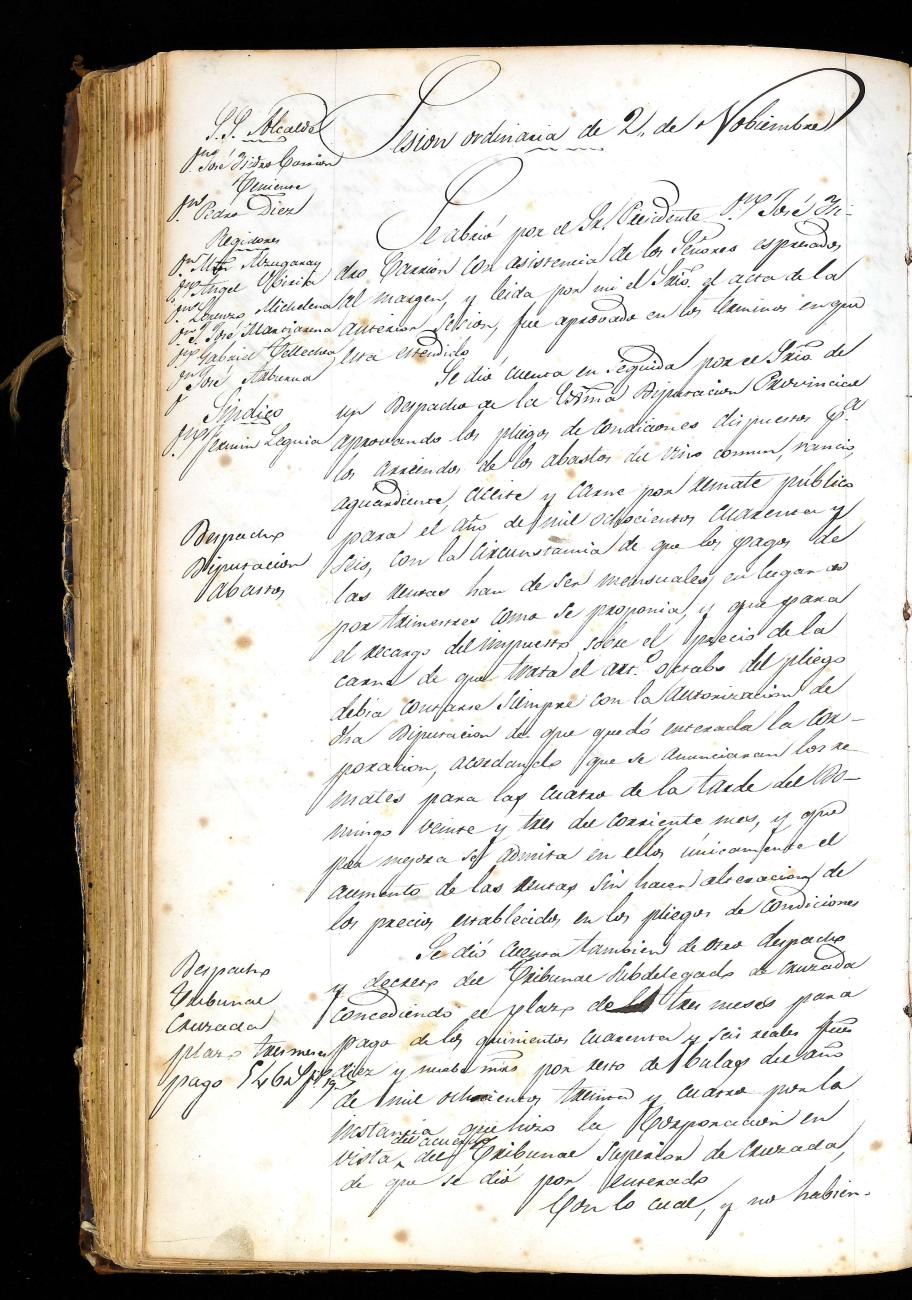 S.S. Alcalde
Dn José Ysidro Carrion
Teniente
Dn Pedro Diez
Regidores
Dn Mar Alzugaray
Dn Angel Oiniza
Dn Lorenzo Michelena
Dn J. José Marciarena
Dn Gabriel Tellechea
Dn José
Sindico
Dn Fermin Leguia
Sesion ordinaria de 2, de Nobiembre
Se abrió por el Sr. Presidente Dn José Ysi-
dro Carrión con asistencia de los Señores espresados
al margen, y leida por mi el Srio. el acta de la
anterior Sesion, fue aprovada en los terminos en que
esta estendida
Se dió cuenta en seguida por el Srio de
un Despacho de la Exma Diputacion Provincial
aprovando los pliegos de condiciones dispuestos pa
los arriendos de los abastos del vino comun, rancio,
aguardiente, aceite y carne por remate público
para el año de mil ochocientos cuarenta y
seis, con la circunstancia de que los pagos de
las rentas han de ser mensuales, en lugar de
por trimestres como se proponia, y que para
el recargo del impuesto sobre el precio de la
carne de que trata el art.o octabo del pliego
debia contarse siempre con la autorizacion de
dha Diputacion de que quedó enterada la Cor-
poracion, acordando que se anunciaran los re-
mates para las cuatro de la tarde del Do-
mingo veinte y tres del corriente mes, y que
por mejora se admita en ellos únicamente el
aumento de las rentas, sin hacer alteracion de
los precios establecidos en los pliegos de condiciones
Despacho
Diputacion
abastos
Se dió cuenta tambien de otro despacho
y decreto del Tribunal Subdelegado de cruzada
concediendo el plazo de tres meses para
pago de los quinientos cuarenta y seis reales ftes
diez y nuebe mrs por resto de bulas del año
de mil ochocientos treinta y cuatro por la
instancia que hizo la Corporacion en
vista del acuerdo del Tribunal Superior de Cruzada,
de que se dió por enterado
Con lo cual, y no habien-
Despacho
Tribunal
Cruzada
plazo tres meses
pago 546 r fs 19